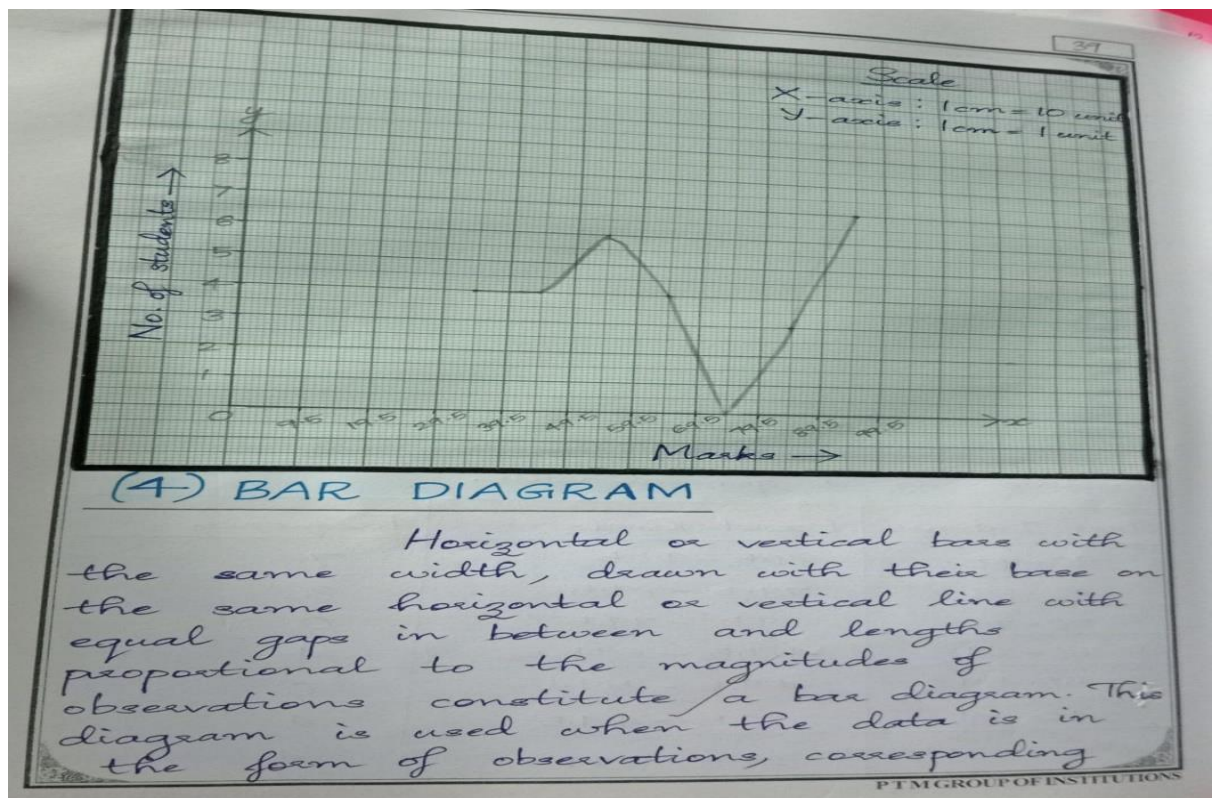 39
Scale
X-axis : 1cm = 10 unit
Y-axis : 1cm = 1 unit
y
8
7
6
5
4
3
2
1
No. of students →
0 9.5 19.5 29.5 39.5 49.5 59.5 69.5 79.5 89.5 99.5 x
Marks →
(4) BAR DIAGRAM
Horizontal or vertical bars with
the same width, drawn with their base on
the same horizontal or vertical line with
equal gaps in between and lengths
proportional to the magnitudes of
observations constitute a bar diagram. This
diagram is used when the data is in
the form of observations, corresponding
PTM GROUP OF INSTITUTIONS